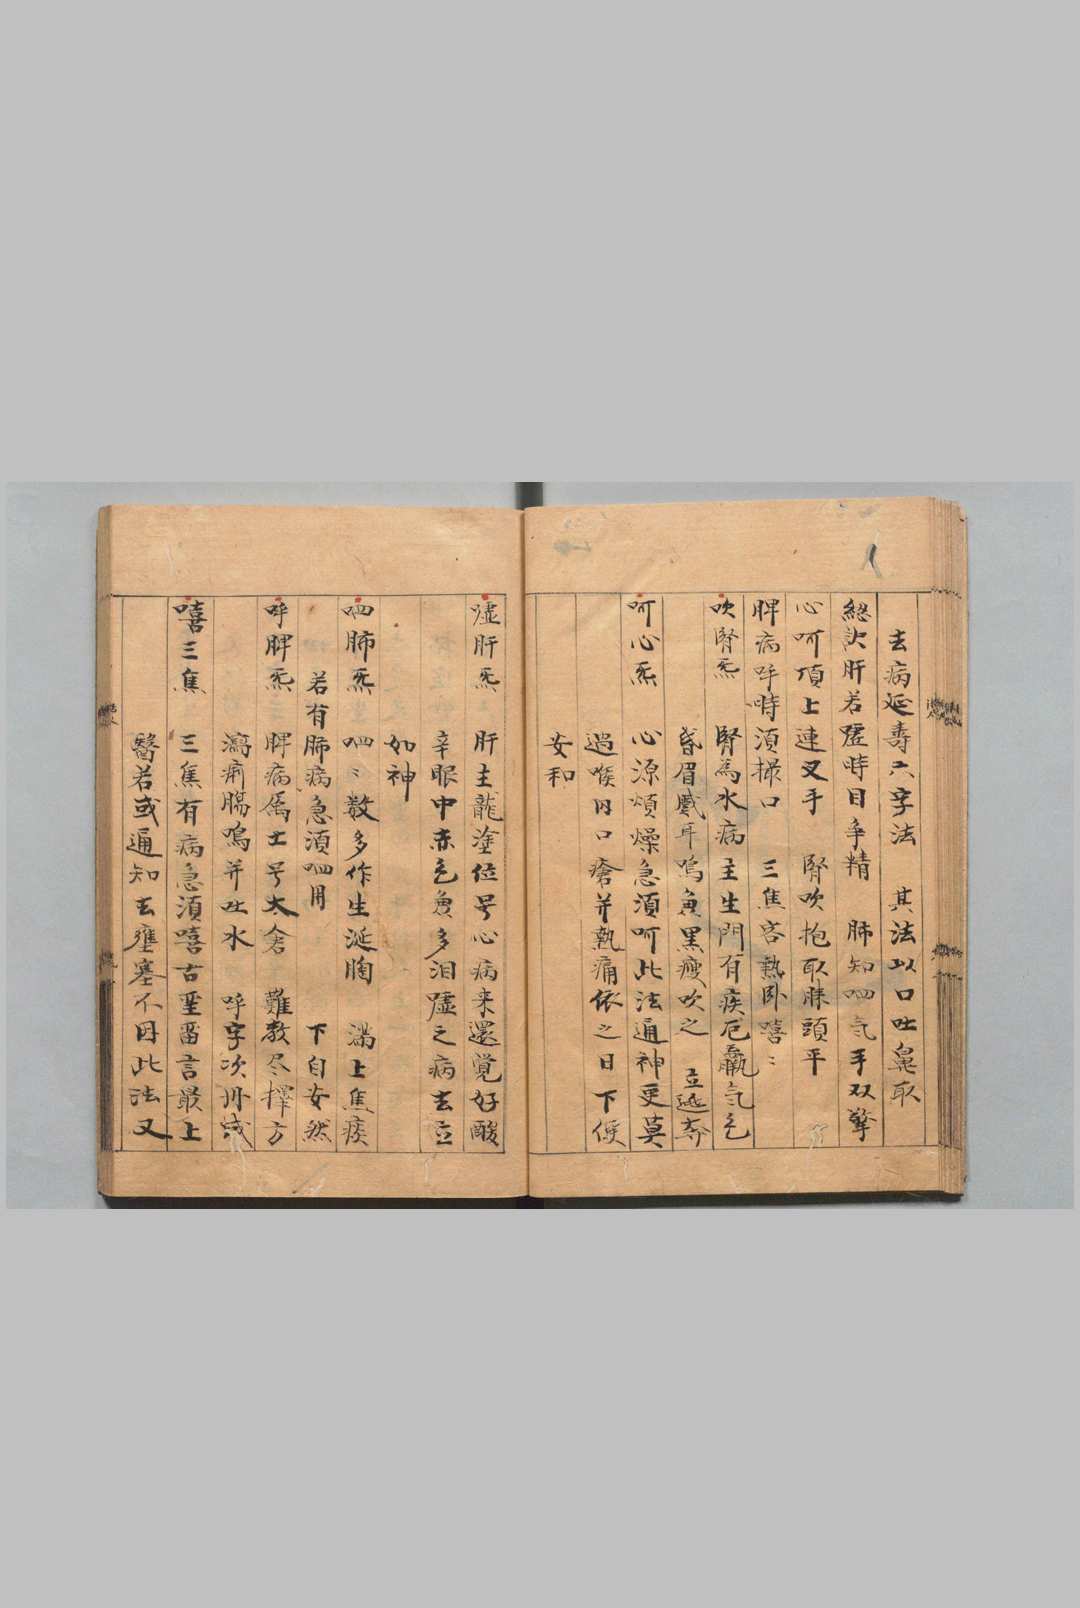 去病延壽六字法 其法以口吐鼻取
總訣肝若噓時目爭精 肺知呬气手双擎
心呵頂上連叉手 腎吹抱取膝頭平
脾病呼時須撮口 三焦客熱卧嘻〻
吹腎炁 腎為水病主生門有疾尫羸气色
昏眉蹙耳鳴鼻黑瘦吹之 立逃奔
呵心炁 心源煩燥急須呵此法通神更莫
過喉内口瘡并熱痛依之日下便
安和
噓肝炁 肝主龍塗位号心病来還覺好酸
辛眼中赤色兼多泪噓之病去立
如神
呬肺炁 呬〻数多作生涎胸 滿上焦痰
若有肺病急須呬用 下自安然
呼脾炁 脾病属土号太倉 難教尽擇方
瀉痢腸鳴并吐水 呼字次丹成
嘻三焦 三焦有病急須嘻古聖留言最上
醫若或通知去壅塞不因此法又